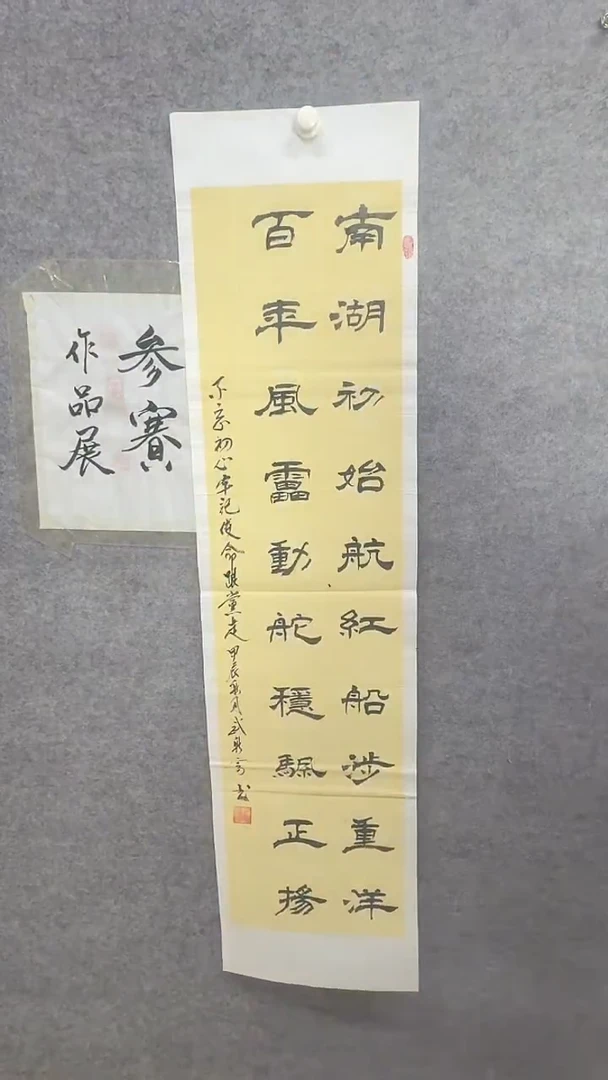 南湖初始航紅船涉重洋
百年風靁動舵穩颿正揚
不忘初心牢記使命跟黨走甲辰夏月武书
参賽
作品展